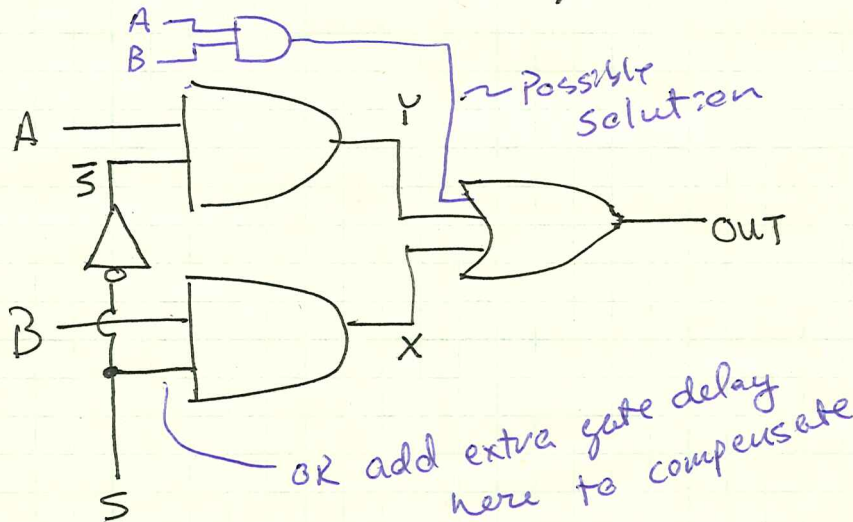 A
B
Possible
solution
A
Y
S̅
OUT
B
X
OR add extra gate delay
here to compensate
S